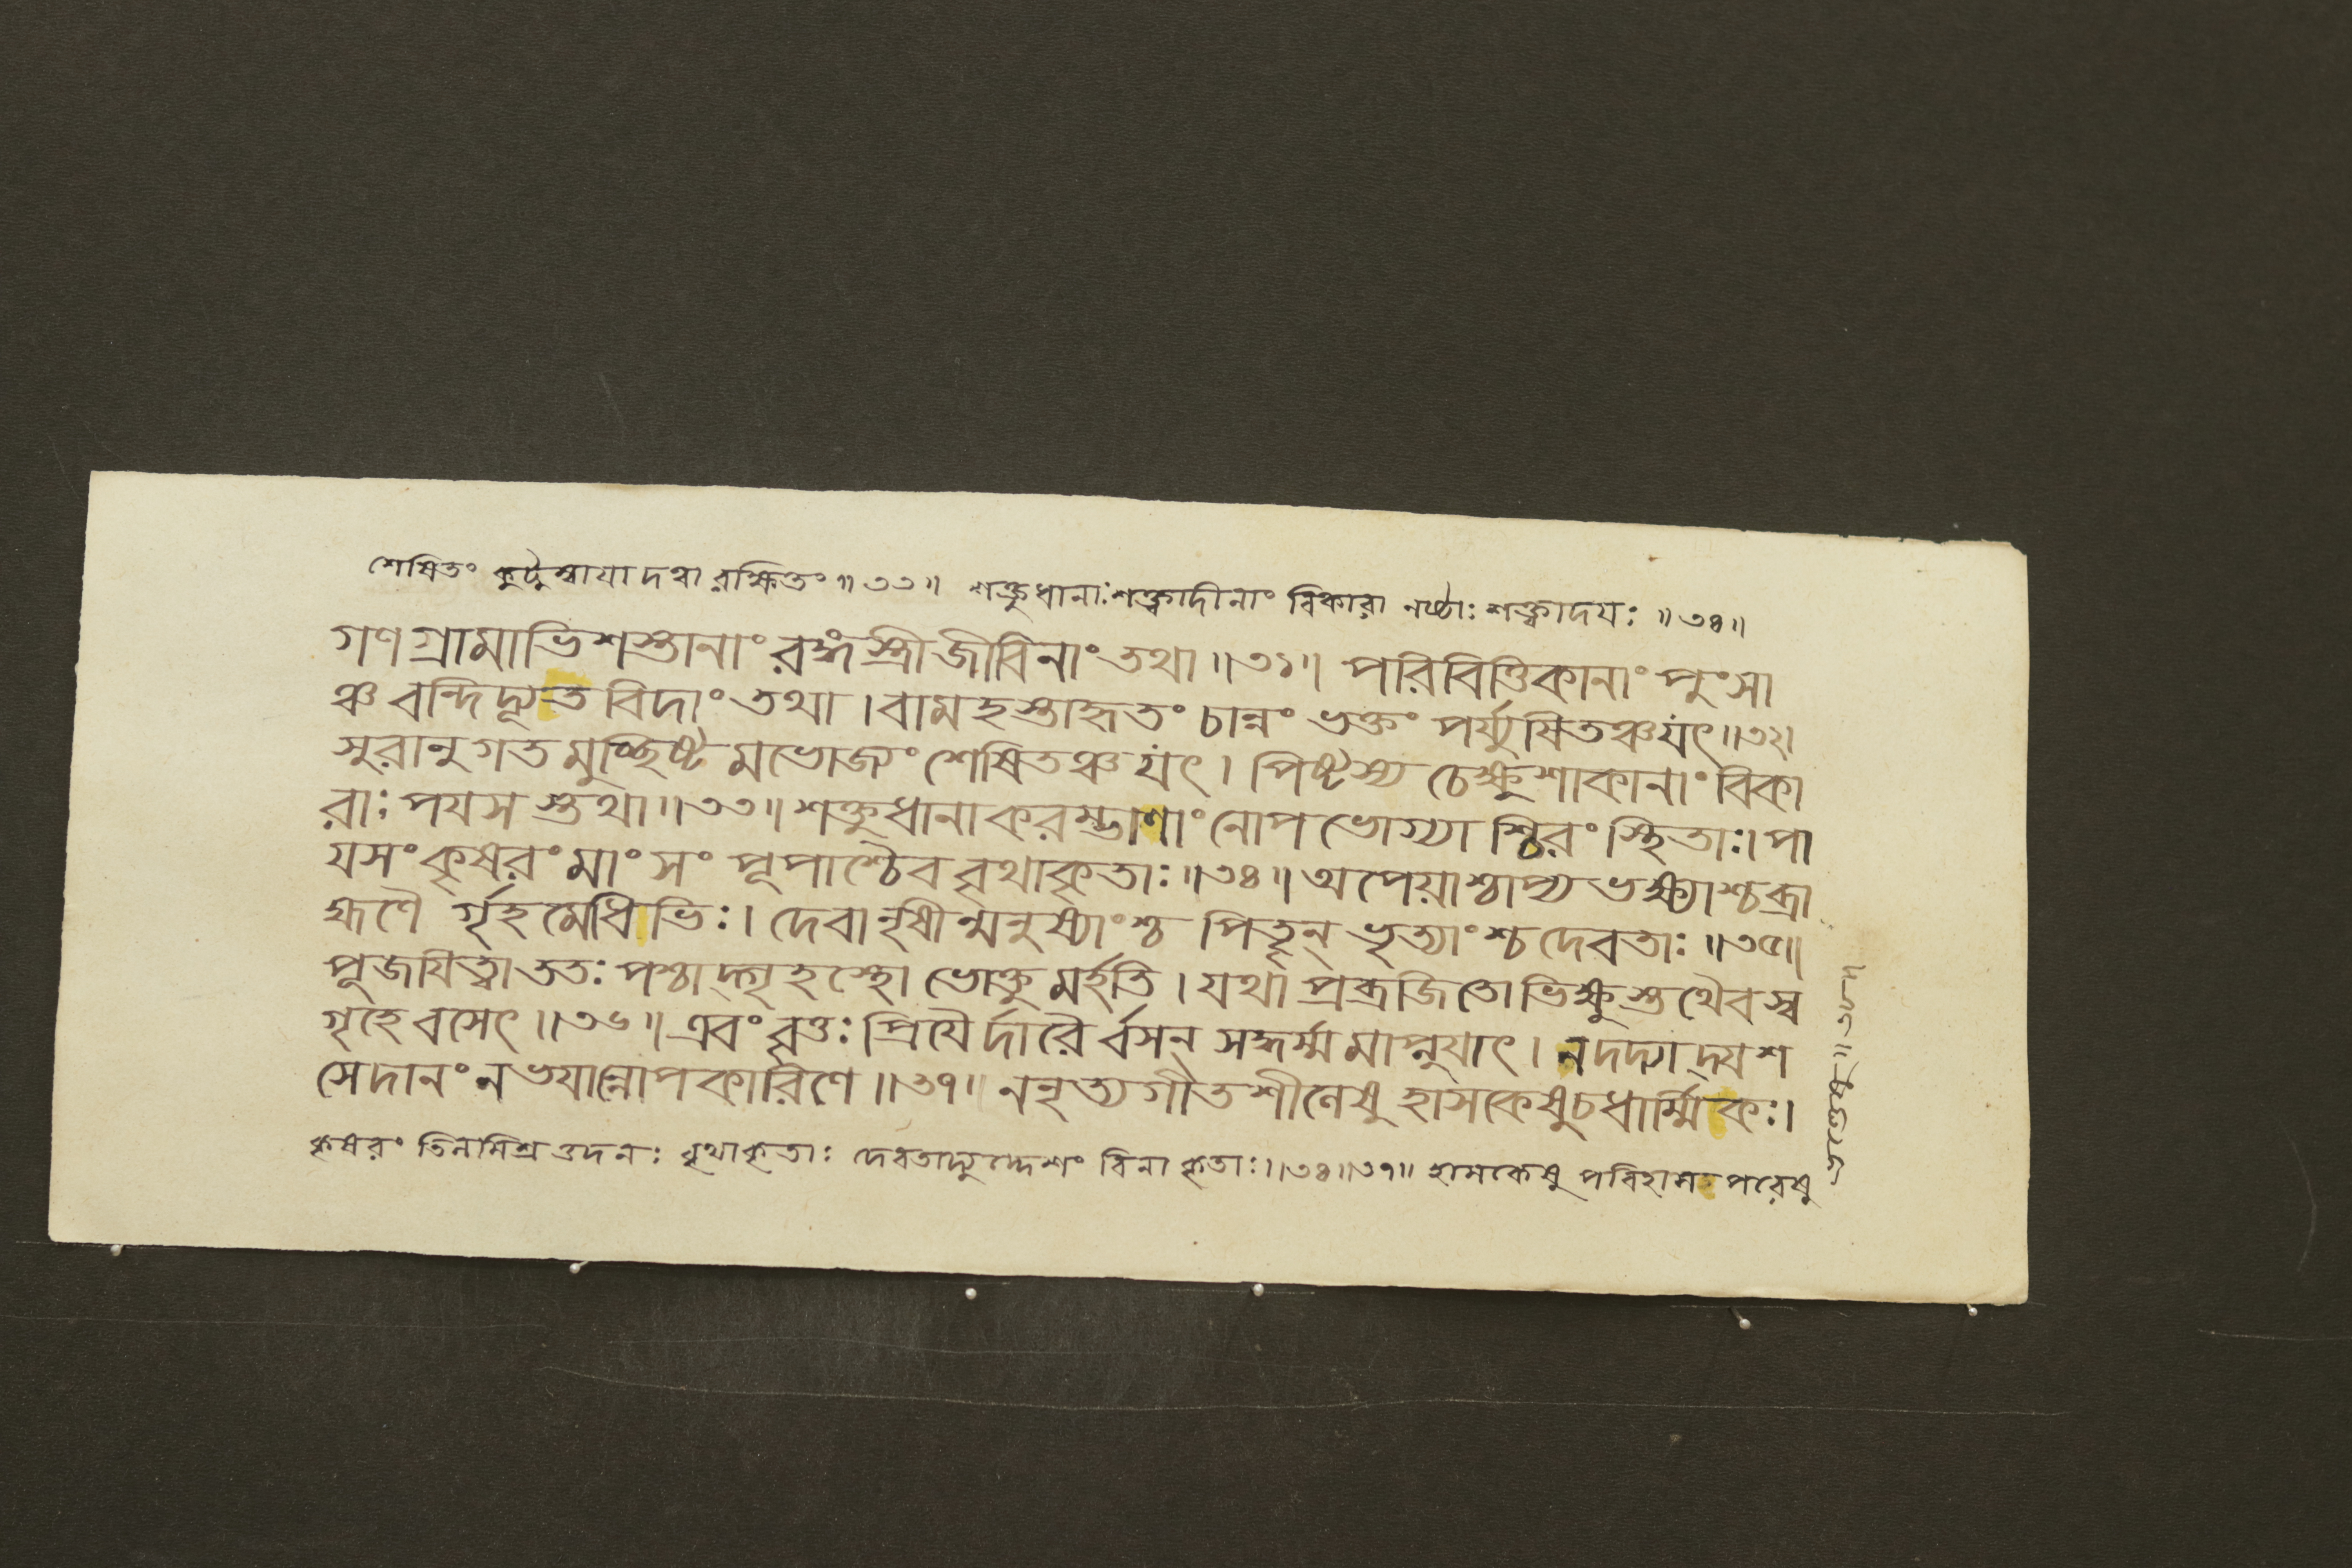 শেষিতং কুটুম্বাযাদত্বা রক্ষিতং॥৩৩॥ শক্তুধানাঃশক্ত্বাদীনাং বিকারা নষ্টাঃ শক্ত্বাদযঃ॥৩৪॥
গণগ্রামাভিশস্তানাং রঙ্গস্ত্রীজীবিনাং তথা॥৩১॥ পরিবিত্তিকানাং পুংসা
ঞ্চ বন্দিদ্যূতবিদাং তথা।বামহস্তাহৃতং চান্নং ভক্তং পর্য্যুষিতঞ্চযৎ॥৩২।
সুরানুগতমুচ্ছিষ্টমভোজ্যং শেষিতঞ্চযৎ। পিষ্টস্য চেক্ষুশাকানাং বিকা
রাঃ পযসস্তথা॥৩৩॥শক্তুধানাকরম্ভাণাং নোপভোগ্যাশ্চিরং স্থিতাঃ।পা
যসং কৃষরং মাংসং পূপাশ্চৈব বৃথাকৃতাঃ॥৩৪॥অপেয়াশ্চাপ্যভক্ষ্যাশ্চব্রা
হ্মণৈ র্গৃহমেধিভিঃ। দেবানৃষীন্মনুষ্যাংশ্চ পিতৄন্ ভৃত্যাংশ্চদেবতাঃ॥৩৫॥
পূজযিত্বা ততঃ পশ্চাদ্গৃহস্থো ভোক্তুমর্হতি।যথা প্রব্রজিতো ভিক্ষুস্তথৈবস্ব
গৃহে বসেৎ॥৩৬॥এবং বৃত্তঃ প্রিযৈর্দারৈ র্বসন্ সদ্ধর্ম্মমাপ্নুযাৎ। নদদ্যাদ্যশ
সেদানং নভযান্নোপকারিণে॥৩৭॥ ননৃত্যগীতশীলেষু হাসকেষুচধার্ম্মিকঃ।
কৃষরং তিলমিশ্র ওদনঃ বৃথাকৃতাঃ দেবতাদ্যুদ্দেশং বিনা কৃতাঃ॥৩৪॥৩৭॥ হাসকেষু পরিহাস পরেষু